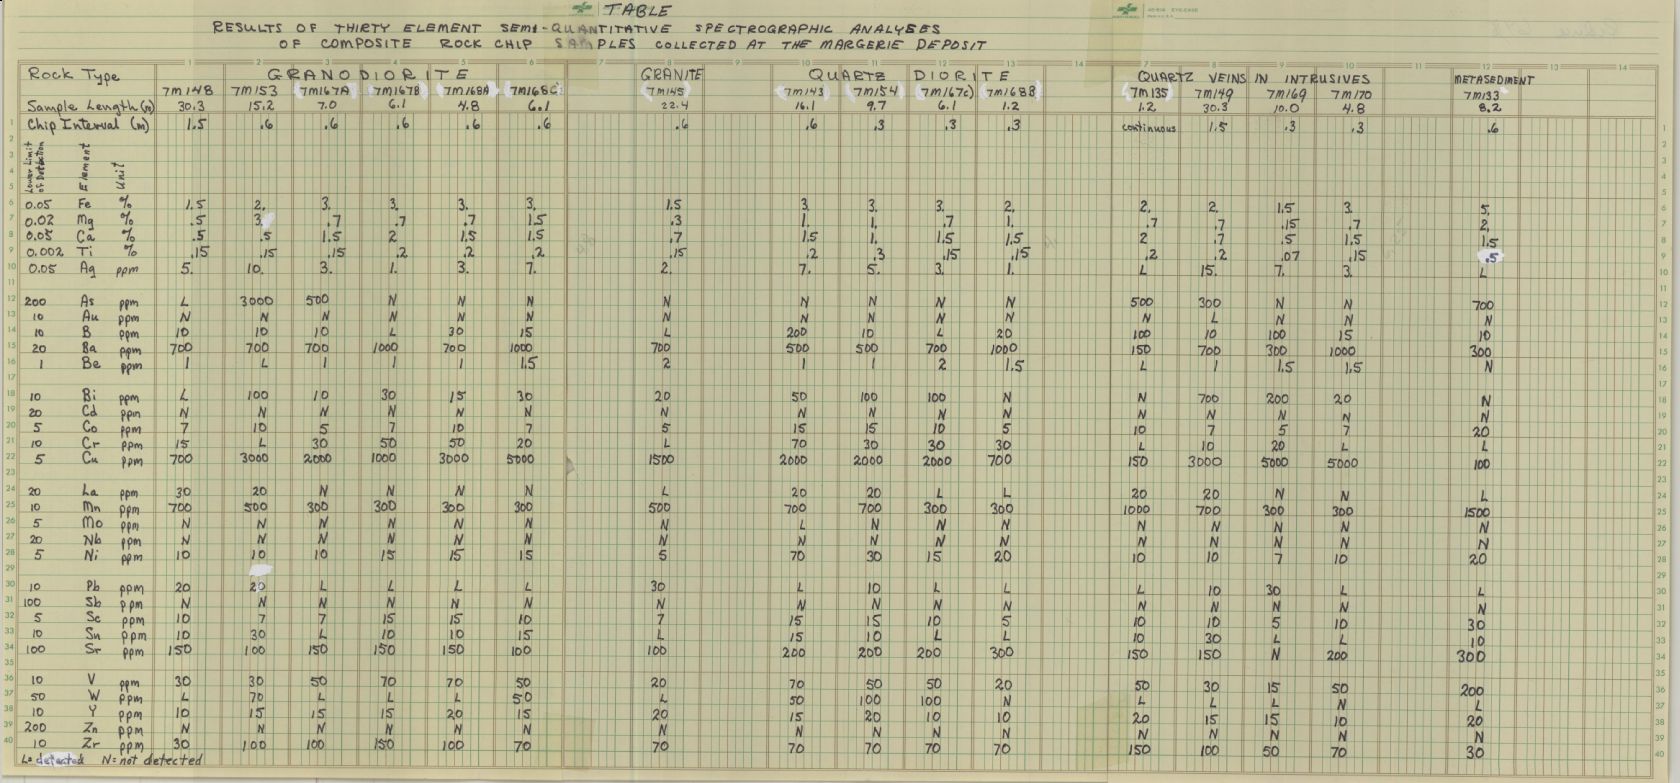 TABLE
RESULTS OF THIRTY ELEMENT SEMI-QUANTITATIVE SPECTROGRAPHIC ANALYSES
OF COMPOSITE ROCK CHIP SAMPLES COLLECTED AT THE MARGERIE DEPOSIT
Rock Type GRANODIORITE GRANITE QUARTZ DIORITE QUARTZ VEINS IN INTRUSIVES METASEDIMENT
7M148 7M153 7M167A 7M167B 7M168A 7M168C 7M145 7M143 7M154 7M167C 7M168B 7M135 7M149 7M169 7M170 7M133
Sample Length (m) 30.3 15.2 7.0 6.1 4.8 6.1 22.4 16.1 9.7 6.1 1.2 1.2 30.3 10.0 4.8 8.2
Chip Interval (m) 1.5 .6 .6 .6 .6 .6 .6 .6 .3 .3 .3 continuous 1.5 .3 .3 .6
Lower Limit of Detection Element Unit
0.05 Fe % 1.5 2. 3. 3. 3. 3. 1.5 3. 3. 3. 2. 2. 2. 1.5 3. 5.
0.02 Mg % .5 3. .7 .7 .7 1.5 .3 1. 1. .7 1. .7 .7 .15 .7 2.
0.05 Ca % .5 .5 1.5 2 1.5 1.5 .7 1.5 1. 1.5 1.5 2 .7 .5 1.5 1.5
0.002 Ti % .15 .15 .15 .2 .2 .2 .15 .2 .3 .15 .15 .2 .2 .07 .15 .5
0.05 Ag ppm 5. 10. 3. 1. 3. 7. 2. 7. 5. 3. 1. L 15. 7. 3. L
200 As ppm L 3000 500 N N N N N N N N 500 300 N N 700
10 Au ppm N N N N N N N N N N N N L N N N
10 B ppm 10 10 10 L 30 15 L 200 10 L 20 100 10 100 15 10
20 Ba ppm 700 700 700 1000 700 1000 700 500 500 700 1000 150 700 300 1000 300
1 Be ppm 1 L 1 1 1 1.5 2 1 1 2 1.5 L 1 1.5 1.5 N
10 Bi ppm L 100 10 30 15 30 20 50 100 100 N N 700 200 20 N
20 Cd ppm N N N N N N N N N N N N N N N N
5 Co ppm 7 10 5 7 10 7 5 15 15 10 5 10 7 5 7 20
10 Cr ppm 15 L 30 50 50 20 L 70 30 30 30 L 10 20 L L
5 Cu ppm 700 3000 2000 1000 3000 5000 1500 2000 2000 2000 700 150 3000 5000 5000 100
20 La ppm 30 20 N N N N L 20 20 L L 20 20 N N L
10 Mn ppm 700 500 300 300 300 300 500 700 700 300 300 1000 700 300 300 1500
5 Mo ppm N N N N N N N L N N N N N N N N
20 Nb ppm N N N N N N N N N N N N N N N N
5 Ni ppm 10 10 10 15 15 15 5 70 30 15 20 10 10 7 10 20
10 Pb ppm 20 20 L L L L 30 L 10 L L L 10 30 L L
100 Sb ppm N N N N N N N N N N N N N N N N
5 Sc ppm 10 7 7 15 15 10 7 15 15 10 5 10 10 5 10 30
10 Sn ppm 10 30 L 10 10 15 L 15 10 L L 10 30 L L 10
100 Sr ppm 150 100 150 150 150 100 100 200 200 200 300 150 150 N 200 300
10 V ppm 30 30 50 70 70 50 20 70 50 50 20 50 30 15 50 200
50 W ppm L 70 L L L 50 L 50 100 100 N L L L N L
10 Y ppm 10 15 15 15 20 15 20 15 20 10 10 20 15 15 10 20
200 Zn ppm N N N N N N N N N N N N N N N N
10 Zr ppm 30 100 100 150 100 70 70 70 70 70 70 150 100 50 70 30
L= detected N= not detected